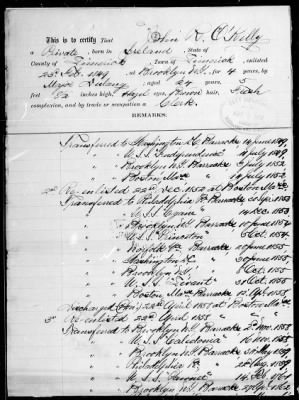 This is to certify That John R. O'Kelly
a Private, born in Ireland, State of
County of Limerick, Town of Limerick, enlisted
23d Feb. 1849, at Brooklyn N.Y. for 4 years, by
Major Delany, aged years, 5
feet 8½ inches high, Hazel eyes, Brown hair, Fresh
complexion, and by trade or occupation a Clerk.
REMARKS.
Transferred to Washington D.C. Barracks 14 June 1849
" U.S.S. Independence July 1849
" Brooklyn N.Y. Barracks July 1852
" Boston Mass " 19 July 1852
2d Re-enlisted 22d Dec. 1852 at Boston Mass
Transferred to Philadelphia Pa Barracks
" U.S.S. Cyane " 14 Dec 1853
" Brooklyn N.Y. Barracks 10 June 1854
" U.S.S. Princeton 5 Oct 1854
" Norfolk Va Barracks 20 June 1855
" Washington D.C. " 30 June 1855
" Brooklyn N.Y. " 8 Oct. 1855
" U.S.S. Levant 31 Oct 1855
" Boston Mass Barracks 1858
Discharged 22d April 1858 at Boston Mass
3d Re-enlisted 22d April 1858 "
Transferred to Brooklyn N.Y. Barracks 2d Nov. 1858
" U.S.S. Caledonia 16 Nov. 1858
" Brooklyn N.Y. Barracks 1859
" Philadelphia Pa " 28 May 1859
" U.S.S. 14
" Brooklyn N.Y. Barracks